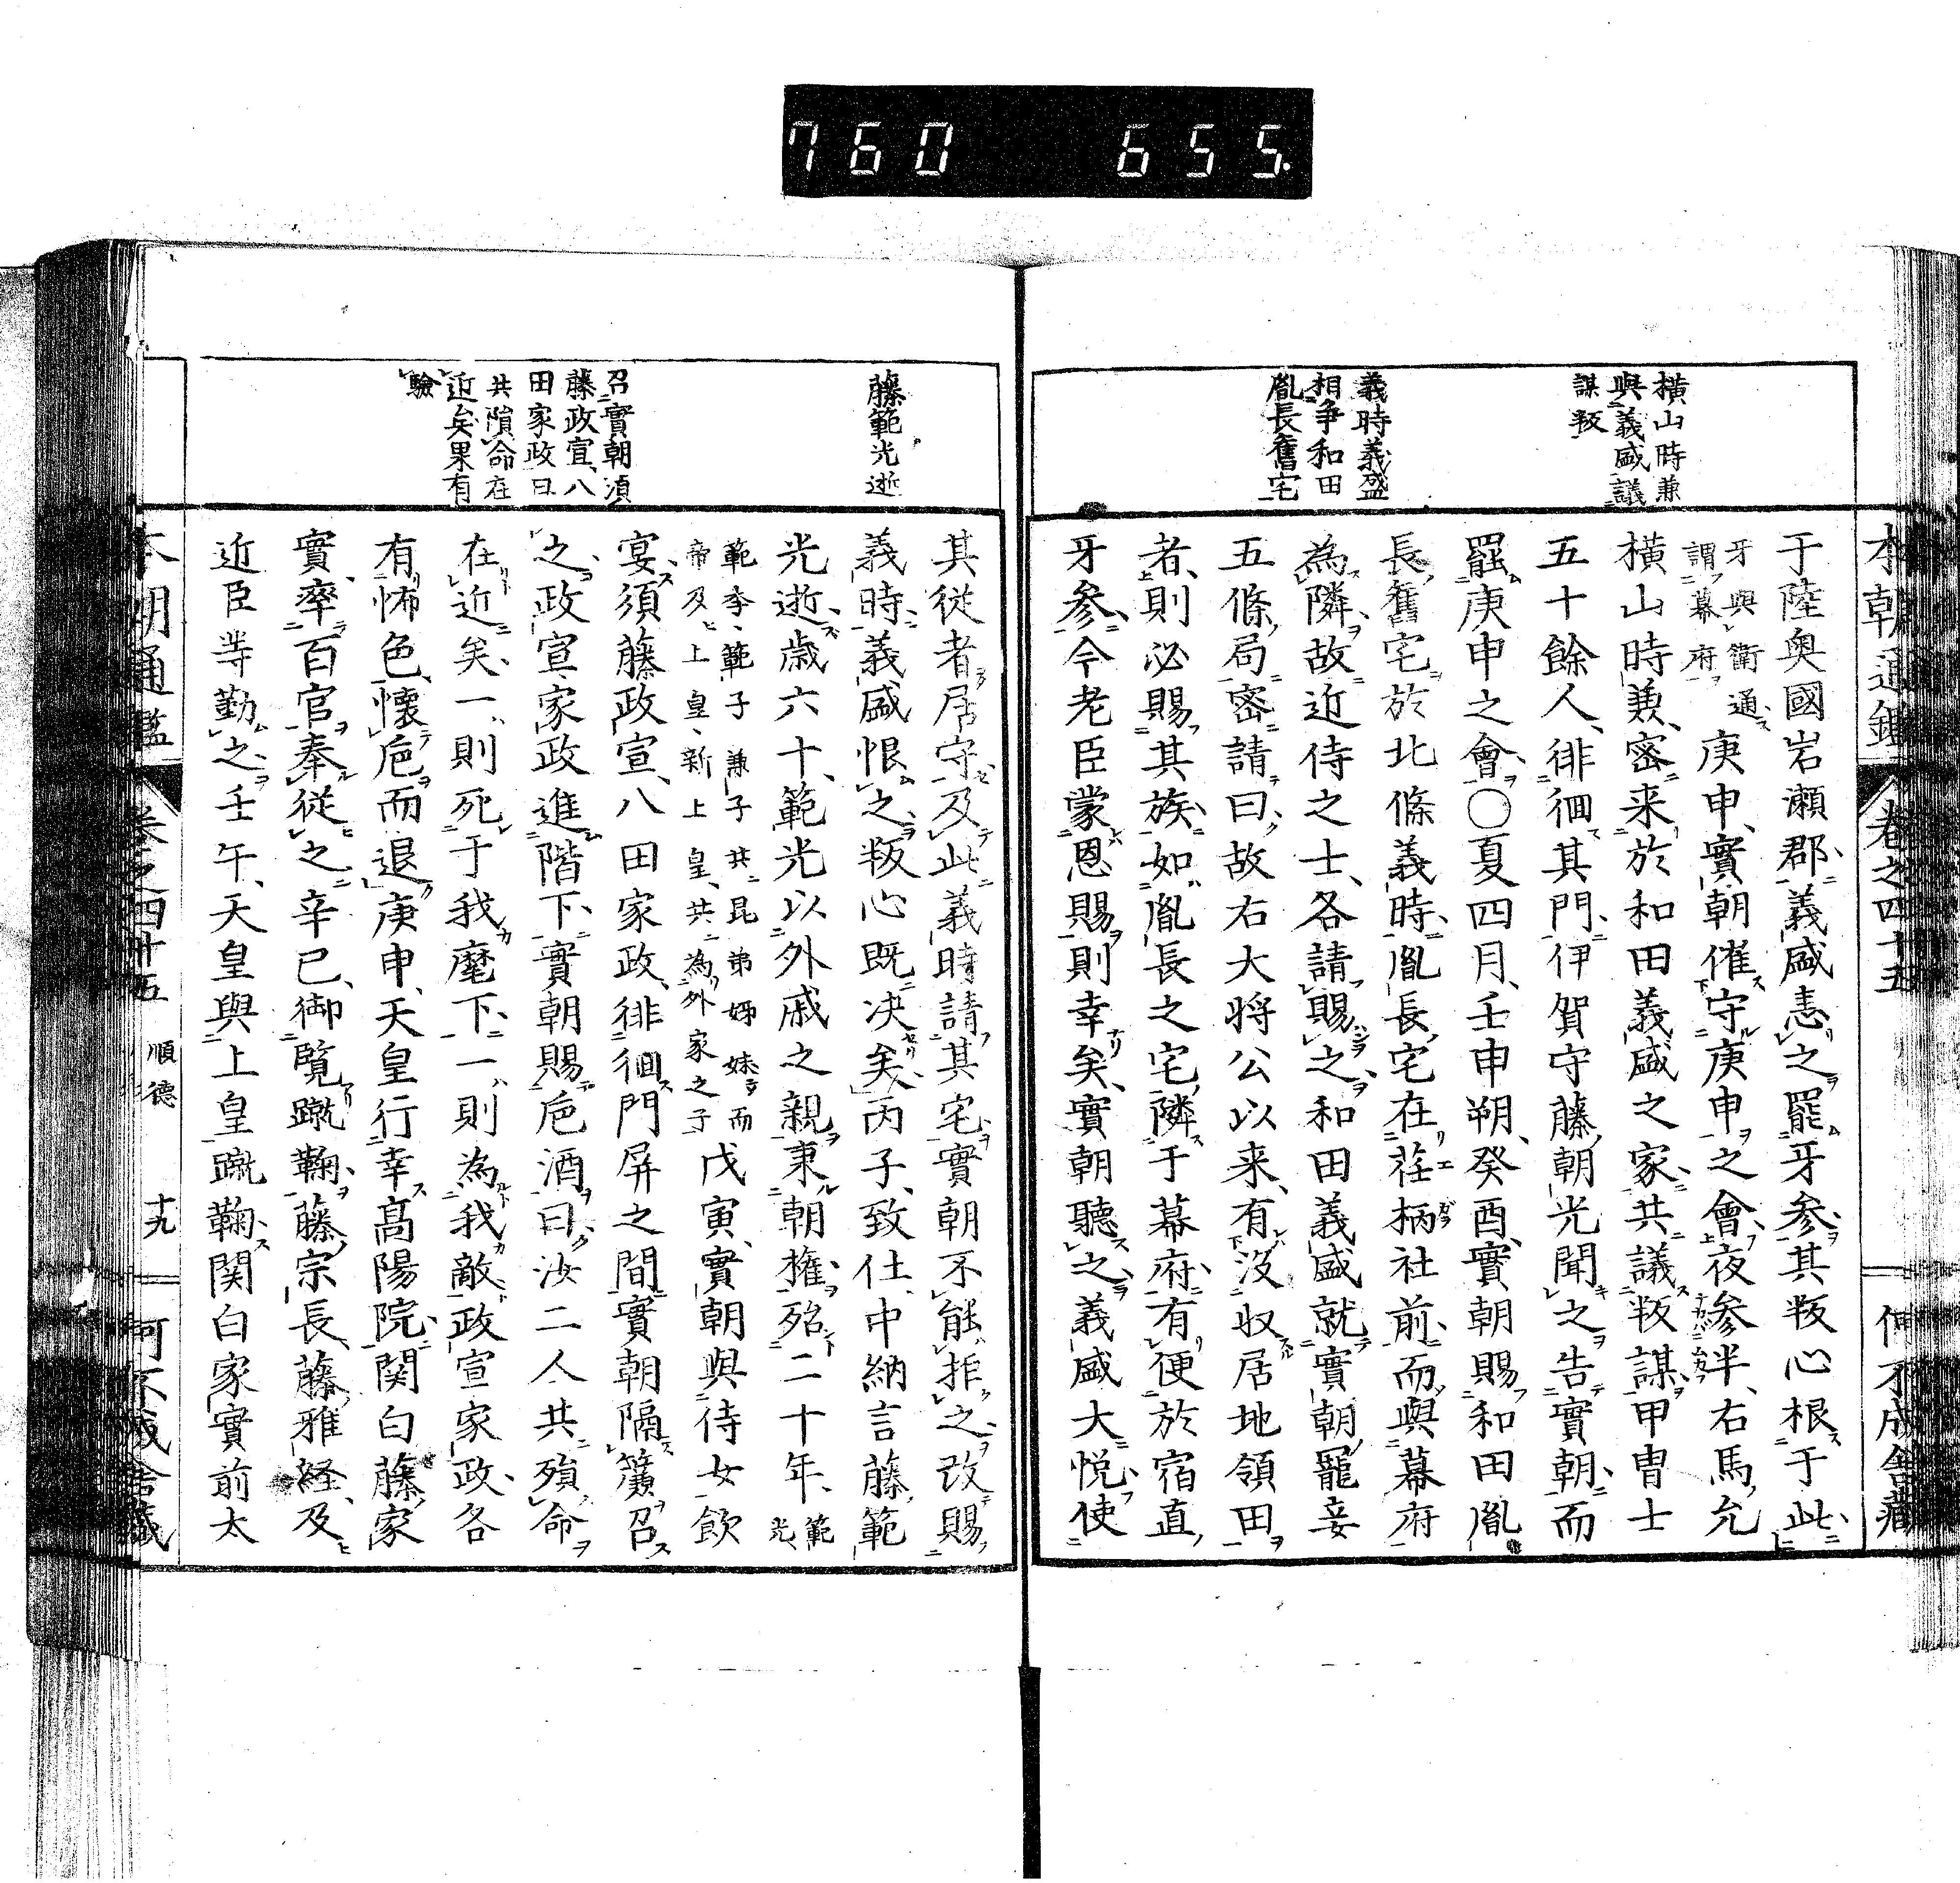 760 655.
本朝通鑑 卷之四十五 伸不成舎藏
橫山時兼
與義盛議
謀叛
義時義盛
相争和田
胤長舊宅
于陸奥國岩瀬郡義盛恚之罷牙参其叛心根于此
牙與衙通
謂幕府
庚申實朝催守庚申之會夜参半右馬允
橫山時兼密来於和田義盛之家共議叛謀甲冑士
五十餘人徘徊其門伊賀守藤朝光聞之告實朝而
罷庚申之會○夏四月壬申朔癸酉實朝賜和田胤
長舊宅於北條義時胤長宅在荏柄社前而與幕府
為隣故近侍之士各請賜之和田義盛就實朝寵妾
五條局密請曰故右大将公以来有没収居地領田
者則必賜其族如胤長之宅隣于幕府有便於宿直
牙參今老臣蒙恩賜則幸矣實朝聽之義盛大悦使
藤範光逝
召實朝湏
藤政宣八
田家政曰
共隕命在
近矣果有
驗
其従者居守及此義時請其宅實朝不能拒之改賜
義時義盛恨之叛心既决矣丙子致仕中納言藤範
光逝歳六十範光以外戚之親秉朝權殆二十年
範光
範季範子兼子共昆弟姊妹而
帝及上皇新上皇共為外家之子
戊寅實朝與侍女飲
宴須藤政宣八田家政徘徊門屏之間實朝隔簾召
之政宣家政進階下實朝賜巵酒曰汝二人共殞命
在近矣一則死于我麾下一則為我敵政宣家政各
有怖色懐巵而退庚申天皇行幸髙陽院関白藤家
實率百官奉従之辛巳御覧蹴鞠藤宗長藤雅経及
近臣等勤之壬午天皇與上皇蹴鞠関白家實前太
本朝通鑑 卷之四十五 順德 十九